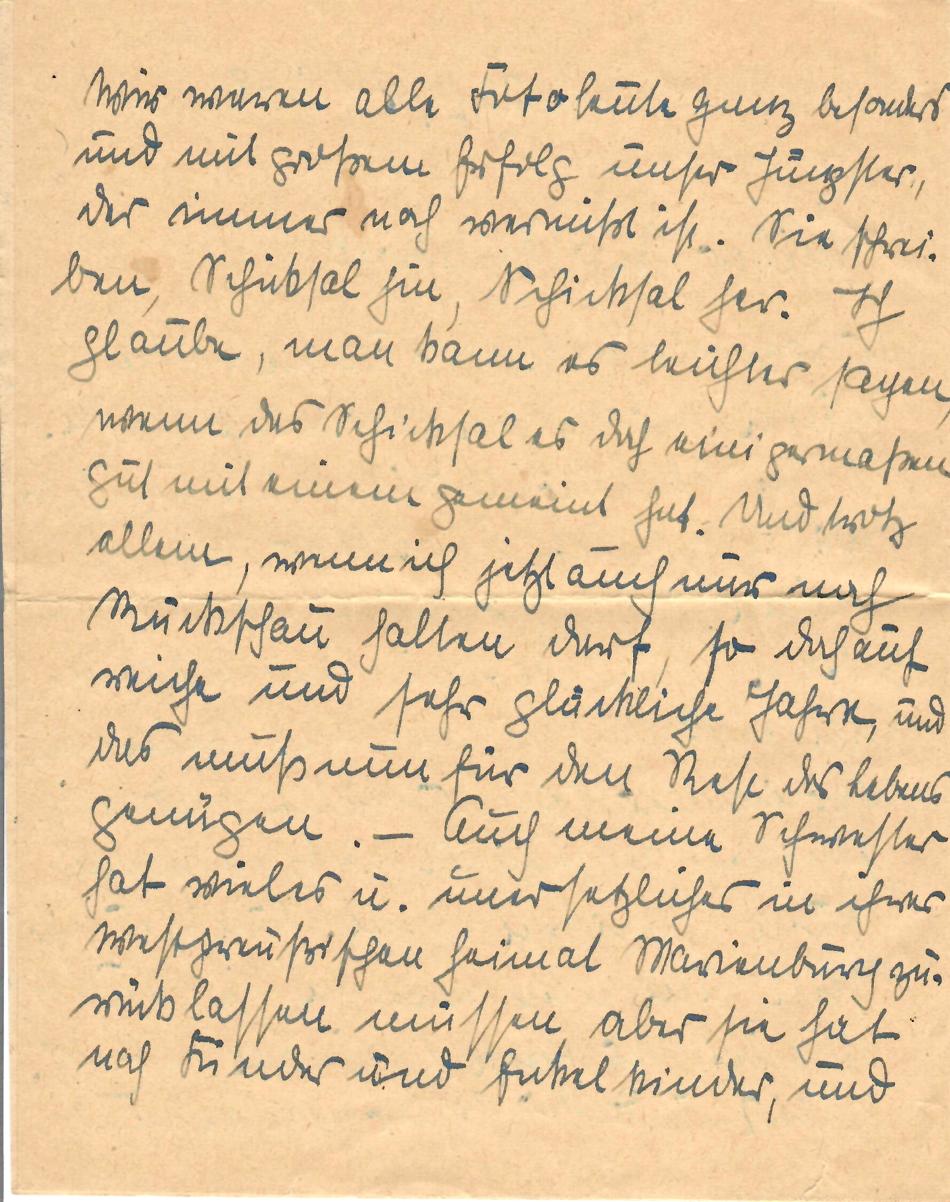 Wir waren alle Fotoleute ganz besonders
und mit großem Erfolg unser Jüngster,
der immer noch vermißt ist. Sie schrei-
ben, Schicksal hin, Schicksal her. Ich
glaube, man kann es leichter sagen,
wenn das Schicksal es doch einigermaßen
gut mit einem gemeint hat. Und trotz
allem, wenn ich jetzt auch nur noch
Rückschau halten darf, so doch auf
reiche und sehr glückliche Jahre, und
das muß nun für den Rest des Lebens
genügen. — Auch meine Schwester
hat vieles u. unersetzliches in ihrer
westpreußischen Heimat Marienburg zu-
rücklassen müssen, aber sie hat
noch Kinder und Enkelkinder, und